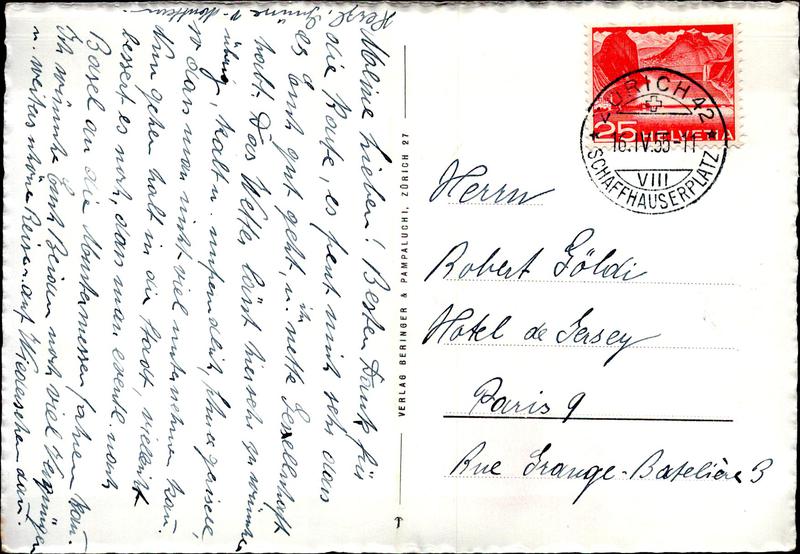 Meine Lieben! Besten Dank für
die Karte, es freut mich sehr dass
es Euch gut geht, u. ihr nette Gesellschaft
habt. Das Wetter lässt hier sehr zu wünschen
übrig, kalt u. unfreundlich,
so dass man nicht viel unternehmen kann.
Nun gehen halt in die Stadt, vielleicht
bessert es noch, dass man nach
Basel an die Mustermesse fahren kann.
Ich wünsche Euch Beiden noch viel Vergnügen
u. weiterschöne Reise auf Wiedersehen dann.
Herzl. Grüsse v.
VERLAG BERINGER & PAMPALUCHI, ZÜRICH 27
25 HELVETIA
ZÜRICH 42
16.IV.55-11
VIII
SCHAFFHAUSERPLATZ
Herrn
Robert Göldi
Hotel de Jersey
Paris 9
Rue Grange-Batelière 3